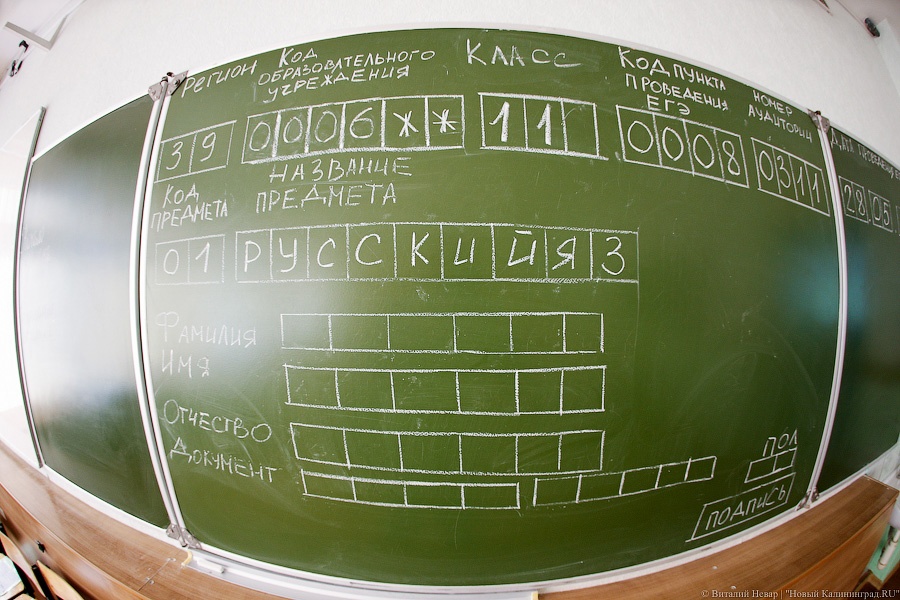 РЕГИОН
КОД
ОБРАЗОВТЛЬНОГО
УЧРЕЖДЕНИЯ
КЛАСС
КОД ПУНКТА
ПРОВЕДЕНИЯ
ЕГЭ
НОМЕР
АУДИТОРИИ
ДАТА ПРОВЕДЕНИЯ
39
0006**
11
0008
0311
28 05
КОД
ПРЕДМЕТА
НАЗВАНИЕ
ПРЕДМЕТА
01
РУССКИЙЯЗ
ФАМИЛИЯ
ИМЯ
ОТЧЕСТВО
ДОКУМЕНТ
ПОЛ
ПОДПИСЬ
© Виталий Невар | "Новый Калининград.RU"